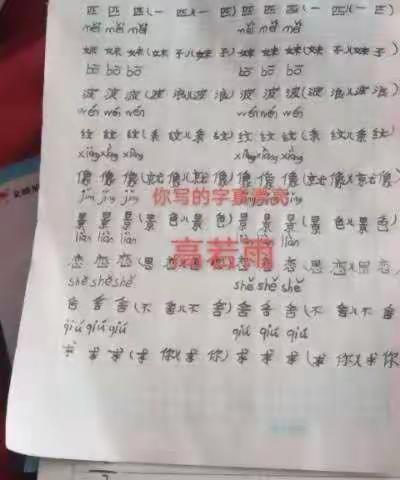 匹 匹 匹(一 匹)(一 匹) 匹 匹 匹(一 匹)(一 匹)
mèi mèi mèi mèi mèi mèi
妹 妹 妹(妹 子)(妹 子) 妹 妹 妹(妹 子)(妹 子)
bō bō bō bō bō
波 波 波(波 浪)(波 浪) 波 波 波(波 浪)(波 浪)
wén wén wén wén wén wén
纹 纹 纹(条 纹)(条 纹) 纹 纹 纹(条 纹)(条 纹)
xiàng xiàng xiàng xiàng xiàng xiàng
像 像 像(就 像)(就 像) 像 像 像(就 像)(就 像)
jǐng jǐng jǐng
你写的字真漂亮
景 景 景(景 色)(景 色) 景 景 景(景 色)(景 色)
liàn liàn liàn liàn
高若雨
恋 恋 恋(思 恋) 恋 恋(思 恋)(思 恋)
shě shě shě shě shě shě
舍 舍 舍(不 舍)(不 舍) 舍 舍 舍(不 舍)(不 舍
qiú qiú qiú qiú qiú qiú
求 求 求(求 你)(求 你) 求 求 求(求 你)(求 你